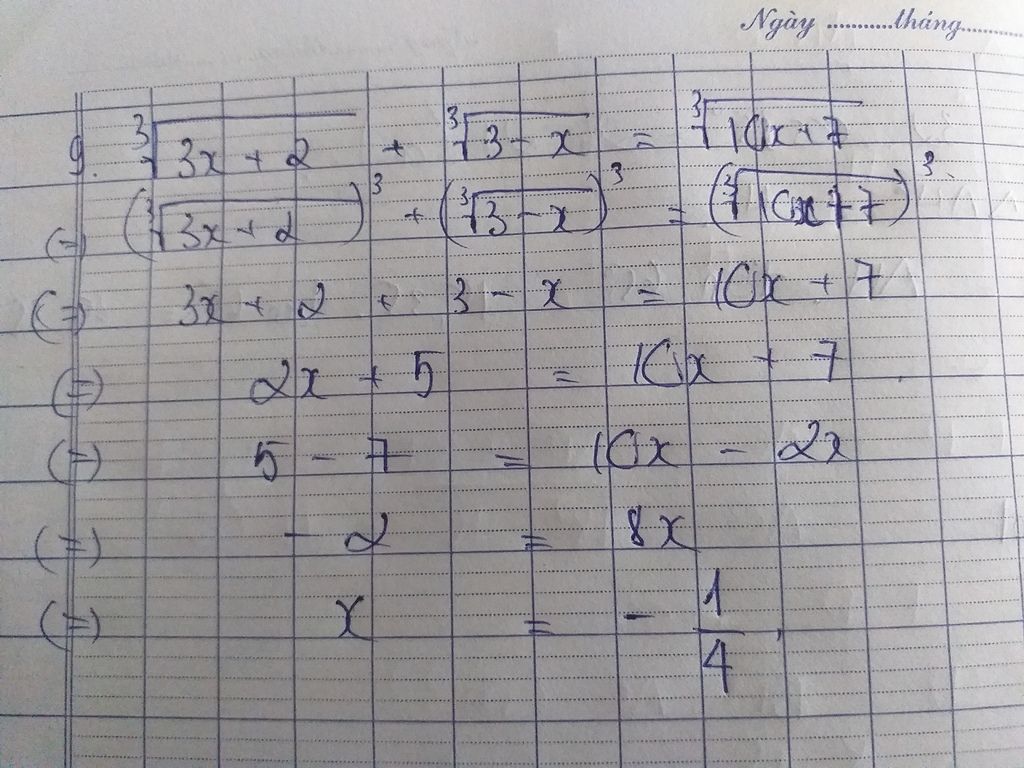 Ngày ...........tháng............
9. ∛(3x + 2) + ∛(3 - x) = ∛(10x + 7)
(=) (∛(3x + 2))³ + (∛(3 - x))³ = (∛(10x + 7))³
(=) 3x + 2 + 3 - x = 10x + 7
(=) 2x + 5 = 10x + 7
(=) 5 - 7 = 10x - 2x
(=) - 2 = 8x
(=) x = - 1/4.